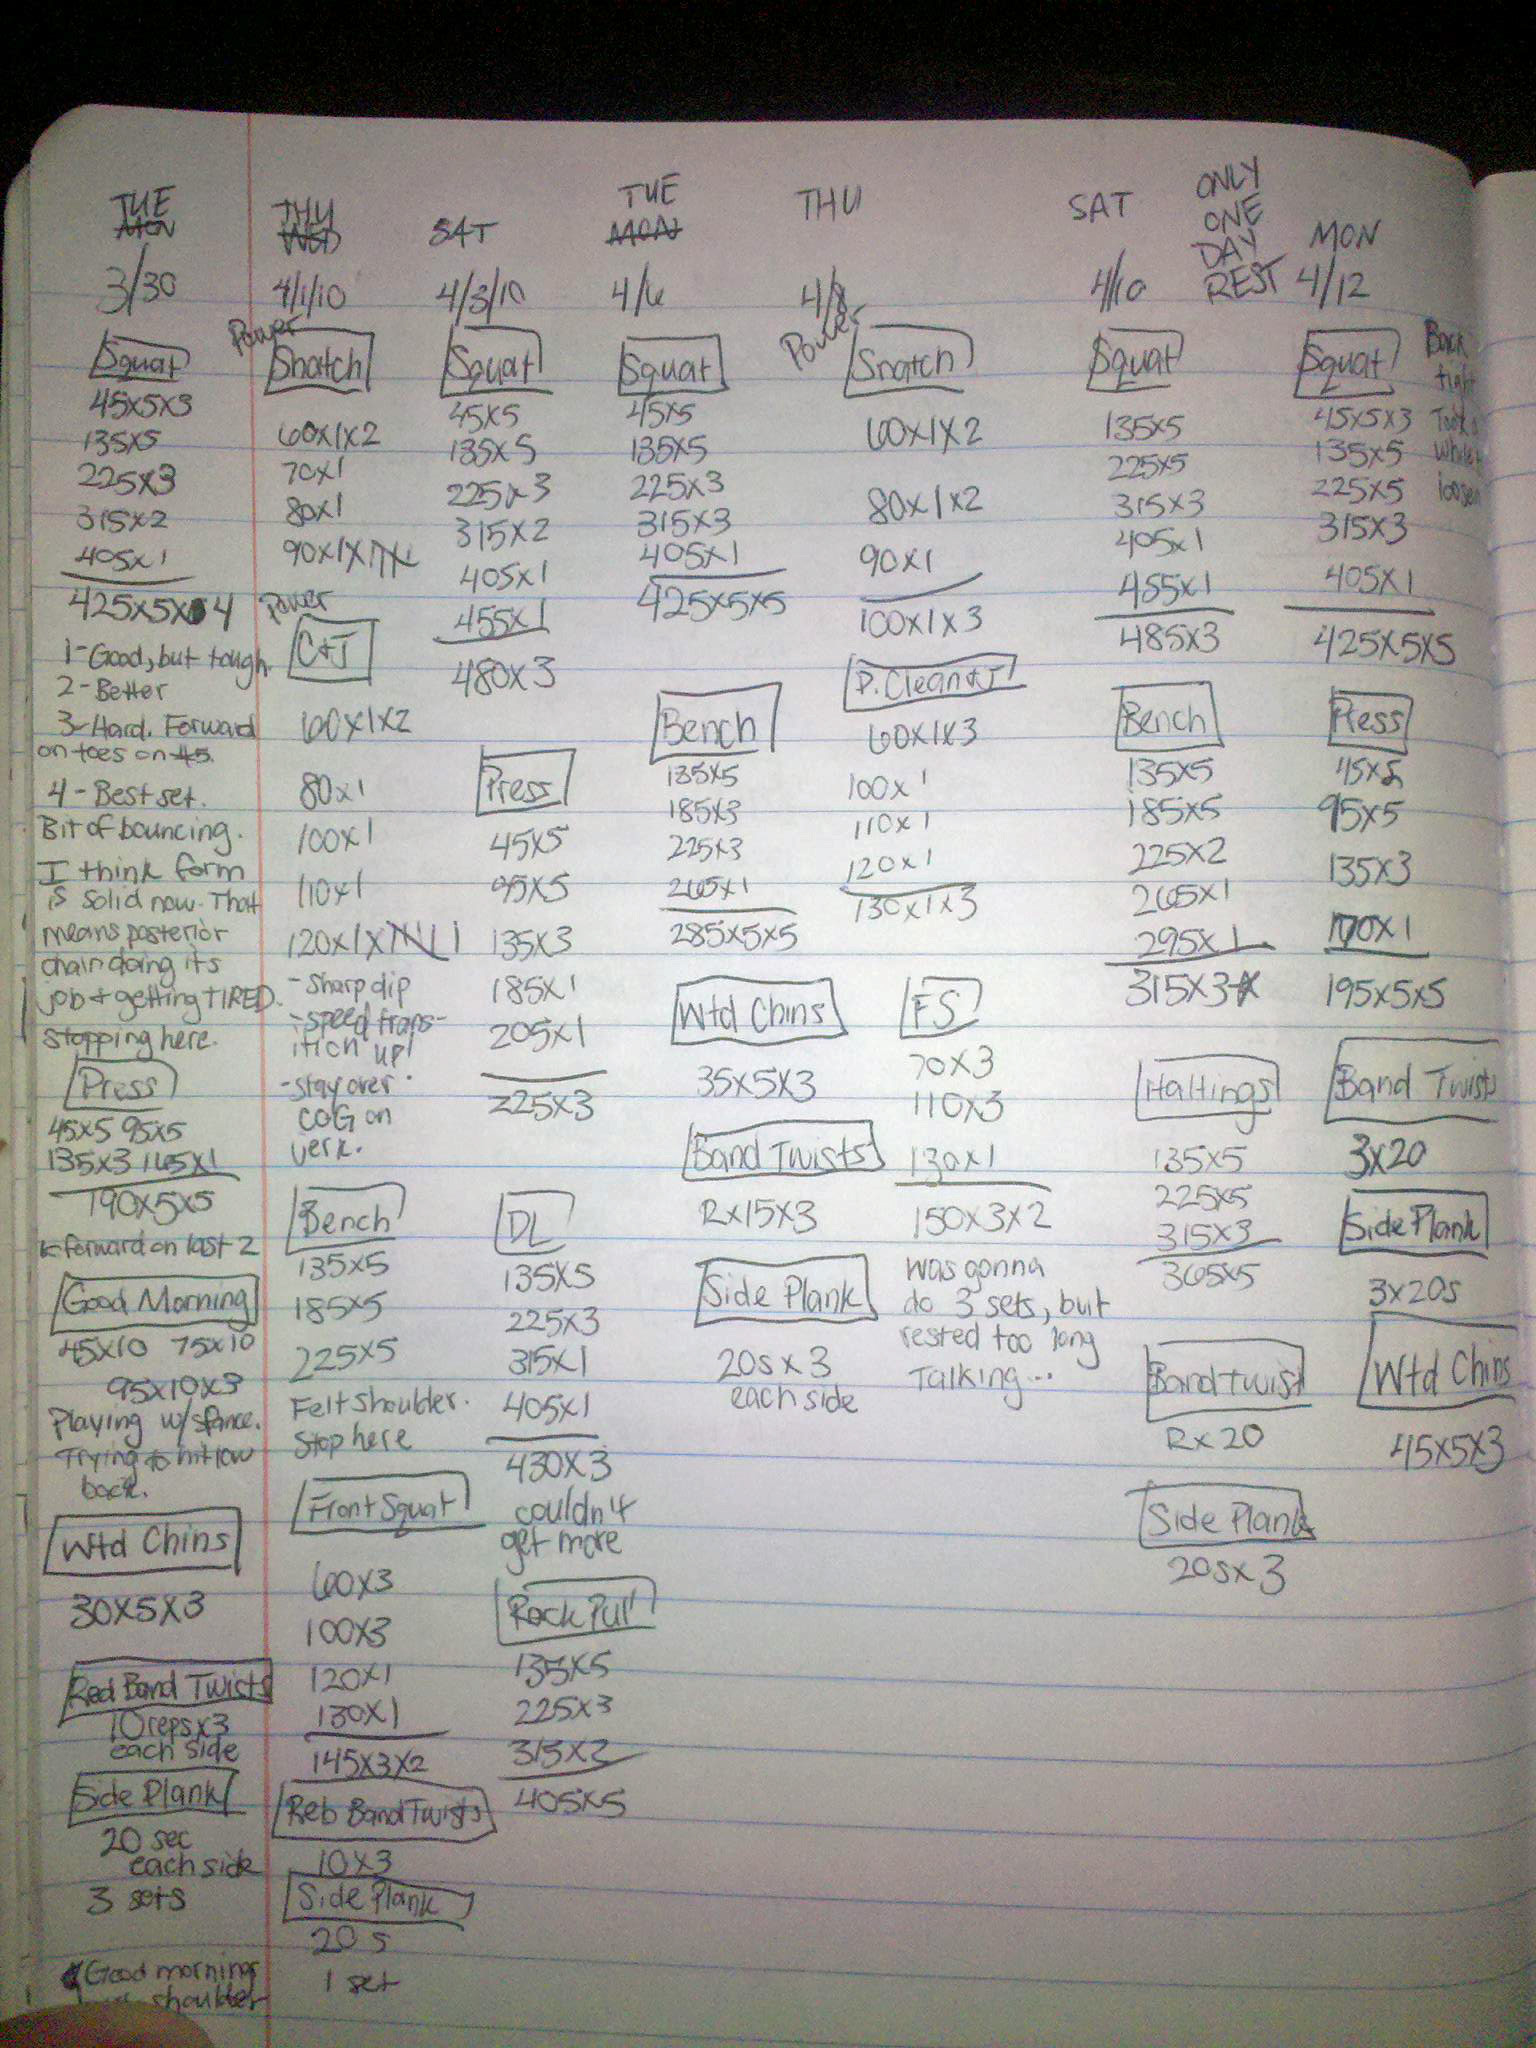 TUE
MON
3/30
Squat
45x5x3
135x5
225x3
315x2
405x1
425x5x 4
1-Good, but tough.
2-Better
3-Hard. Forward
on toes on #5.
4-Best set.
Bit of bouncing.
I think form
is solid now. That
means posterior
chain doing its
job + getting TIRED.
stopping here.
Press
45x5 95x5
135x3 165x1
190x5x5
forward on last 2
Good Morning
45x10 75x10
95x10x3
Playing w/stance.
Trying to hit low
back.
Wtd Chins
30x5x3
Red Band Twists
10 reps x3
each side
Side Plank
20 sec
each side
3 sets
Good morning
shoulder
THU
WED
4/1/10
Power
Snatch
60x1x2
70x1
80x1
90x1x
Power
C+J
60x1x2
80x1
100x1
110x1
120x1x
-Sharp dip
-speed trans-
ition up!
-stay over
COG on
jerk.
Bench
135x5
185x5
225x5
Felt shoulder.
Stop here
Front Squat
60x3
100x3
120x1
130x1
145x3x2
Reb Band Twists
10x3
Side Plank
20 s
1 set
SAT
4/3/10
Squat
45x5
135x5
225x3
315x2
405x1
455x1
480x3
Press
45x5
95x5
135x3
185x1
205x1
225x3
DL
135x5
225x3
315x1
405x1
430x3
couldn't
get more
Rack Pull
135x5
225x3
315x2
405x5
TUE
MON
4/6
Squat
45x5
135x5
225x3
315x3
405x1
425x5x5
Bench
135x5
185x3
225x3
265x1
285x5x5
Wtd Chins
35x5x3
Band Twists
Rx15x3
Side Plank
20s x 3
each side
THU
4/8
Power
Snatch
60x1x2
80x1x2
90x1
100x1x3
P. Clean+J
60x1x3
100x1
110x1
120x1
130x1x3
FS
70x3
110x3
130x1
150x3x2
Was gonna
do 3 sets, but
rested too long
Talking...
SAT
4/10
Squat
135x5
225x5
315x3
405x1
455x1
485x3
Bench
135x5
185x5
225x2
265x1
295x1
315x3
Haltings
135x5
225x5
315x3
365x5
Band twist
Rx20
Side Plank
20s x 3
ONLY
ONE
DAY
REST
MON
4/12
Squat
45x5x3
135x5
225x5
315x3
405x1
425x5x5
Back
tight
Took a
while t
loosen
Press
45x5
95x5
135x3
170x1
195x5x5
Band Twists
3x20
Side Plank
3x20s
Wtd Chins
45x5x3